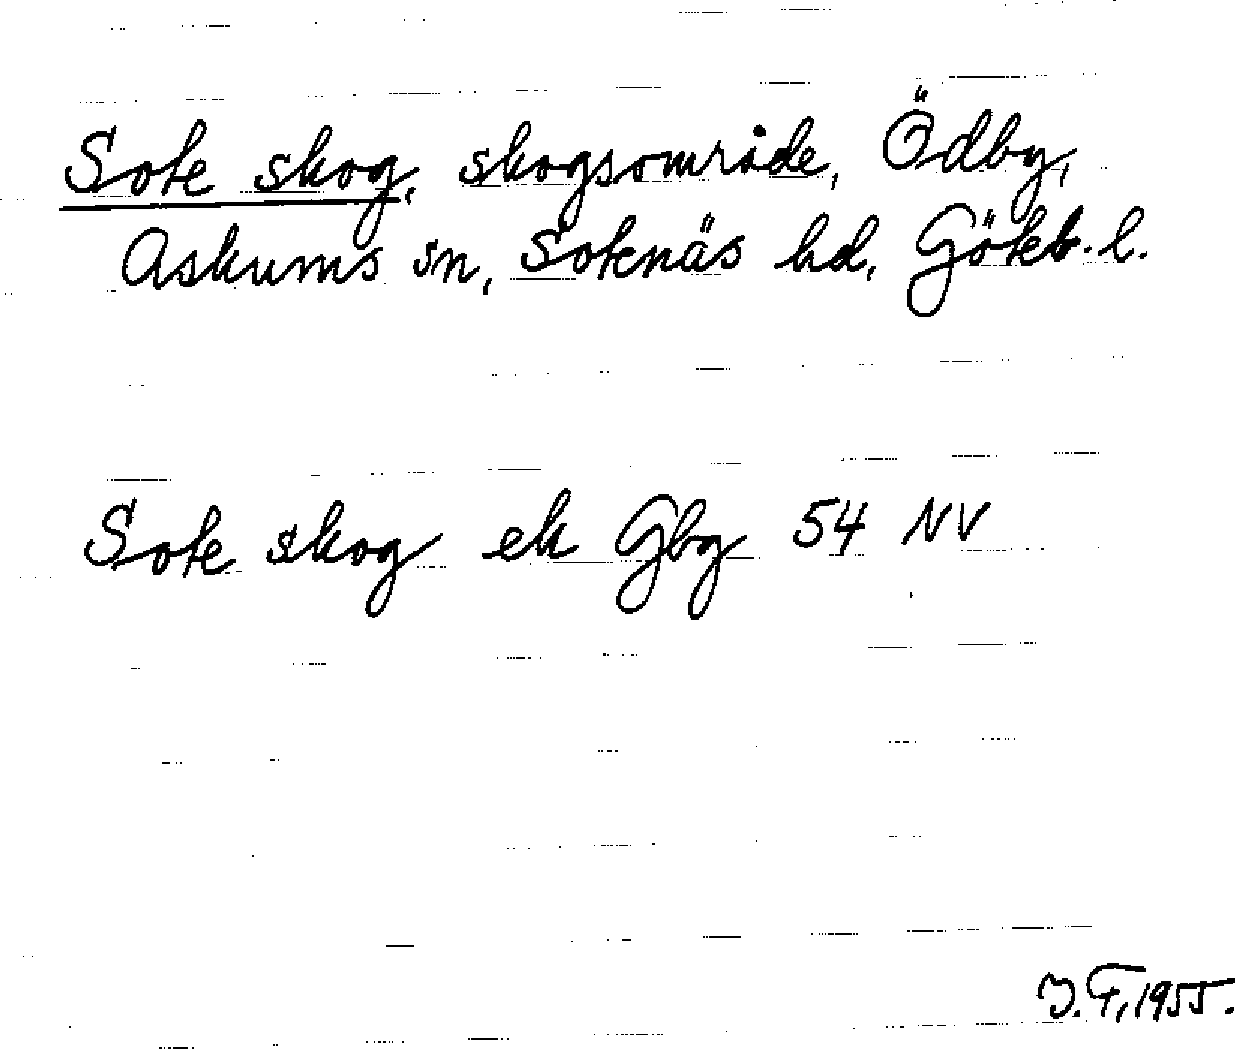 Sote skog, skogsområde, Ödby,
Askums sn, Sotenäs hd, Göteb. l.
Sote skog ek Gbg 54 NV
J. F, 1955.